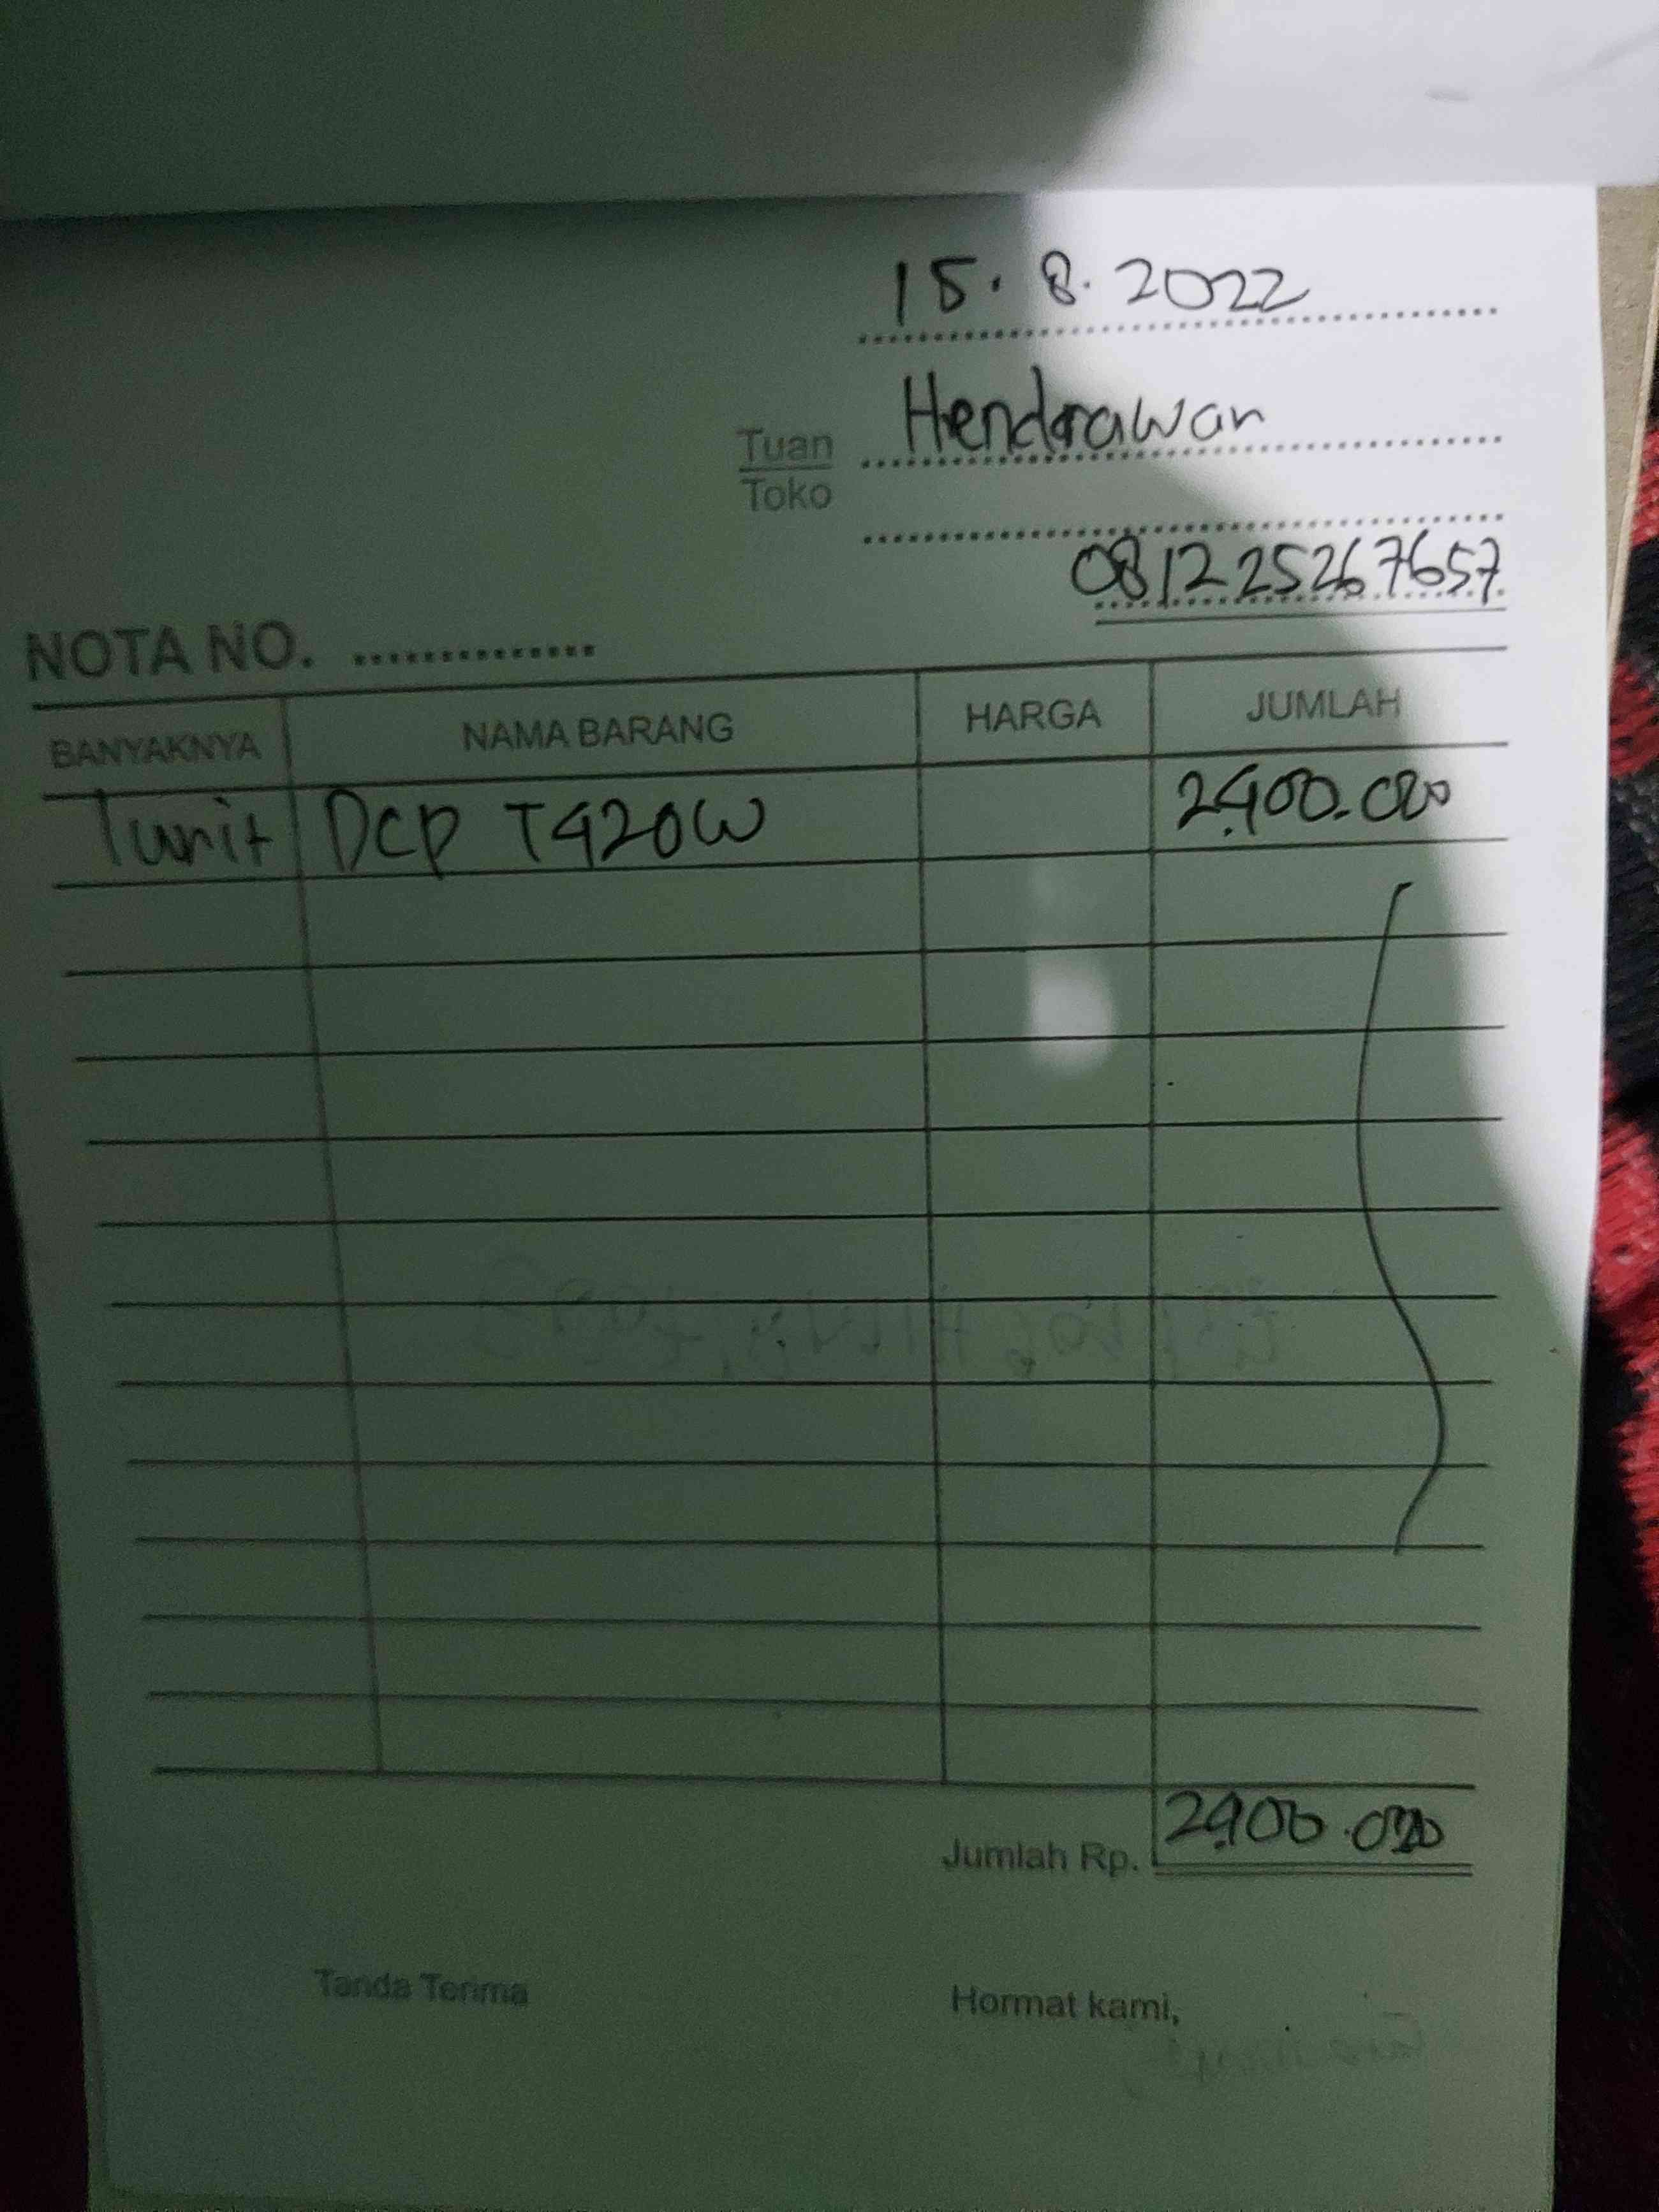 15.8.2022
Tuan Hendrawan
Toko
081225267657
NOTA NO. ..............
BANYAKNYA NAMA BARANG HARGA JUMLAH
1 unit DCP T420W 2.400.000
Jumlah Rp. 2.400.000
Tanda Terima Hormat kami,